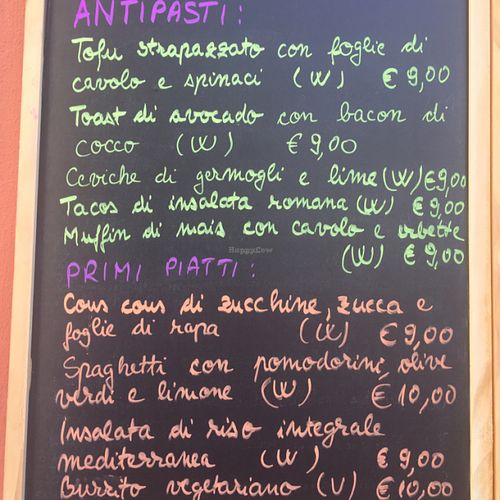 ANTIPASTI:
Tofu strapazzato con foglie di
cavolo e spinaci (W) € 9,00
Toast di avocado con bacon di
cocco (W) € 9,00
Ceviche di germogli e lime (W) € 9,00
Tacos di insalata romana (W) € 9,00
Muffin di mais con cavolo e erbette
(W) € 9,00
HappyCow
PRIMI PIATTI:
Cous cous di zucchine, zucca e
foglie di rapa (W) € 9,00
Spaghetti con pomodorini, olive
verdi e limone (W) € 10,00
Insalata di riso integrale
mediterranea (W) € 9,00
Burrito vegetariano (V) € 10,00